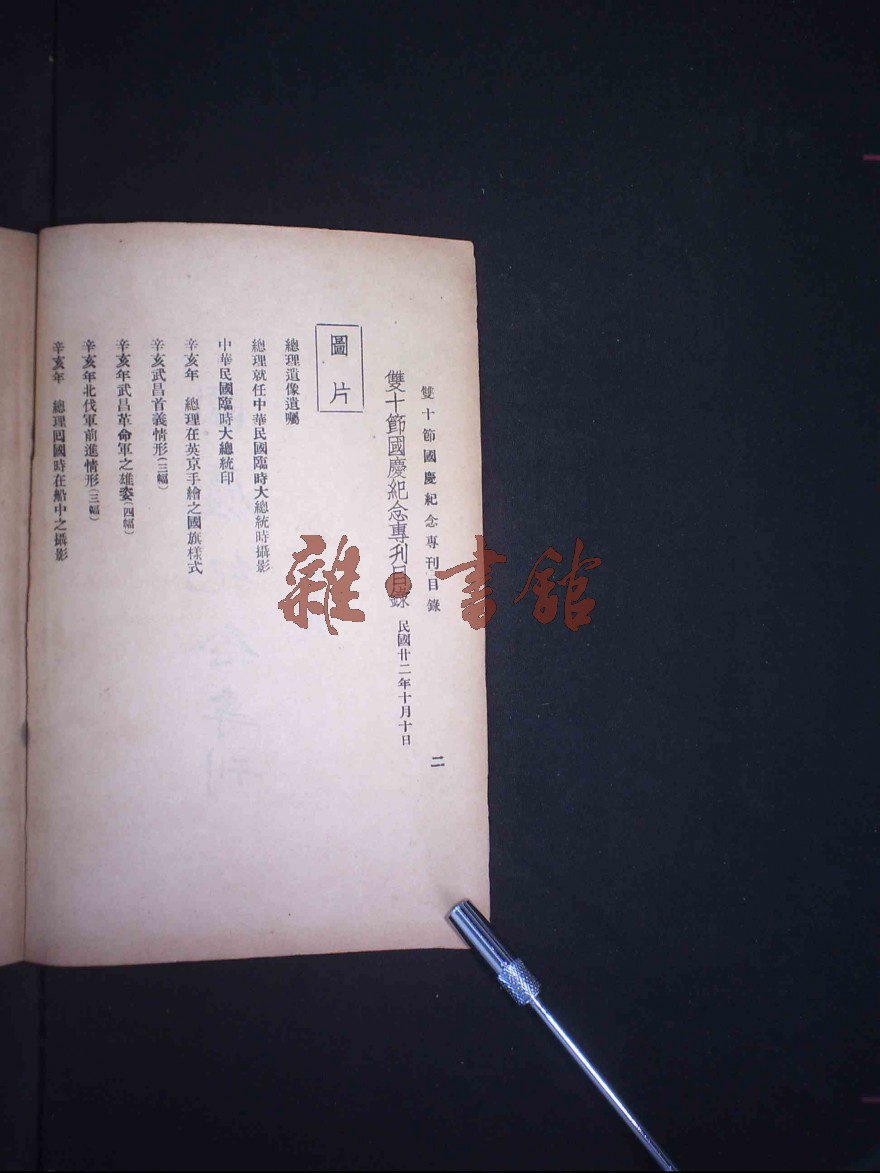 雙十節國慶紀念專刊目錄
二
雙十節國慶紀念專刊目錄 民國廿二年十月十日
圖片
總理遺像遺囑
總理就任中華民國臨時大總統時攝影
中華民國臨時大總統印
辛亥年 總理在英京手繪之國旗樣式
辛亥武昌首義情形(三幅)
辛亥年武昌革命軍之雄姿(四幅)
辛亥年北伐軍前進情形(三幅)
辛亥年 總理回國時在船中之攝影
雜·書館